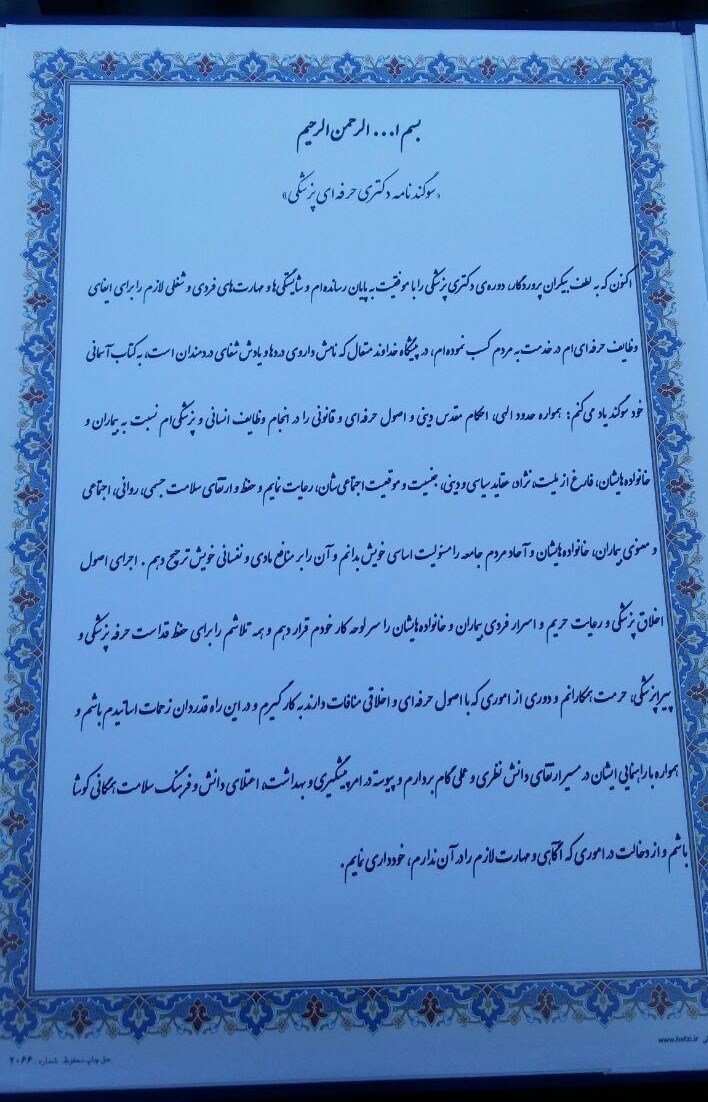 بسم ا... الرحمن الرحیم
«سوگندنامه دکتری حرفه ای پزشکی»
اکنون که به لطف بیکران پروردگار، دوره‌ی دکتری پزشکی را با موفقیت به پایان رسانده‌ام و شایستگی‌ها و مهارت‌های فردی و شغلی لازم را برای ایفای
وظایف حرفه‌ای‌ام در خدمت به مردم کسب نموده‌ام، در پیشگاه خداوند متعال که نامش داروی دردها و یادش شفای دردمندان است، به کتاب آسمانی
خود سوگند یاد می‌کنم: همواره حدود الهی، احکام مقدس دینی و اصول حرفه‌ای و قانونی را در انجام وظایف انسانی و پزشکی‌ام نسبت به بیماران و
خانواده‌هایشان، فارغ از ملیت، نژاد، عقاید سیاسی و دینی، جنسیت و موقعیت اجتماعی‌شان، رعایت نمایم و حفظ و ارتقای سلامت جسمی، روانی، اجتماعی
و معنوی بیماران، خانواده‌هایشان و آحاد مردم جامعه را مسئولیت اساسی خویش بدانم و آن را بر منافع مادی و نفسانی خویش ترجیح دهم. اجرای اصول
اخلاق پزشکی و رعایت حریم و اسرار فردی بیماران و خانواده‌هایشان را سرلوحه کار خودم قرار دهم و همه تلاشم را برای حفظ قداست حرفه پزشکی و
پیراپزشکی، حرمت همکارانم و دوری از اموری که با اصول حرفه‌ای و اخلاقی منافات دارند به کار گیرم و در این راه قدردان زحمات اساتیدم باشم و
همواره با راهنمایی ایشان در مسیر ارتقای دانش نظری و عملی گام بردارم و پیوسته در امر پیشگیری و بهداشت، اعتلای دانش و فرهنگ سلامت همگانی کوشا
باشم و از دخالت در اموری که آگاهی و مهارت لازم را در آن ندارم، خودداری نمایم.
www.hafzi.ir
حق چاپ محفوظ. شماره: ۲۰۶۶